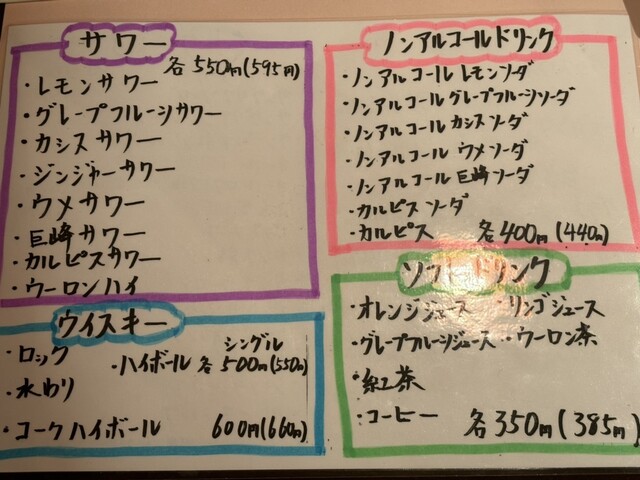 サワー
各 550円(595円)
・レモンサワー
・グレープフルーツサワー
・カシスサワー
・ジンジャーサワー
・ウメサワー
・巨峰サワー
・カルピスサワー
・ウーロンハイ
ウイスキー
・ロック
・ハイボール
シングル
各 500円(550円)
・水わり
・コークハイボール 600円(660円)
ノンアルコールドリンク
・ノンアルコール レモンソーダ
・ノンアルコール グレープフルーツソーダ
・ノンアルコール カシスソーダ
・ノンアルコール ウメソーダ
・ノンアルコール 巨峰ソーダ
・カルピスソーダ
・カルピス 各400円(440円)
ソフトドリンク
・オレンジジュース ・リンゴジュース
・グレープフルーツジュース ・ウーロン茶
・紅茶
・コーヒー 各350円(385円)